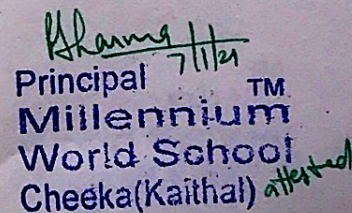 Sharma
7/1/21
Principal
Millennium™
World School
Cheeka(Kaithal) attested